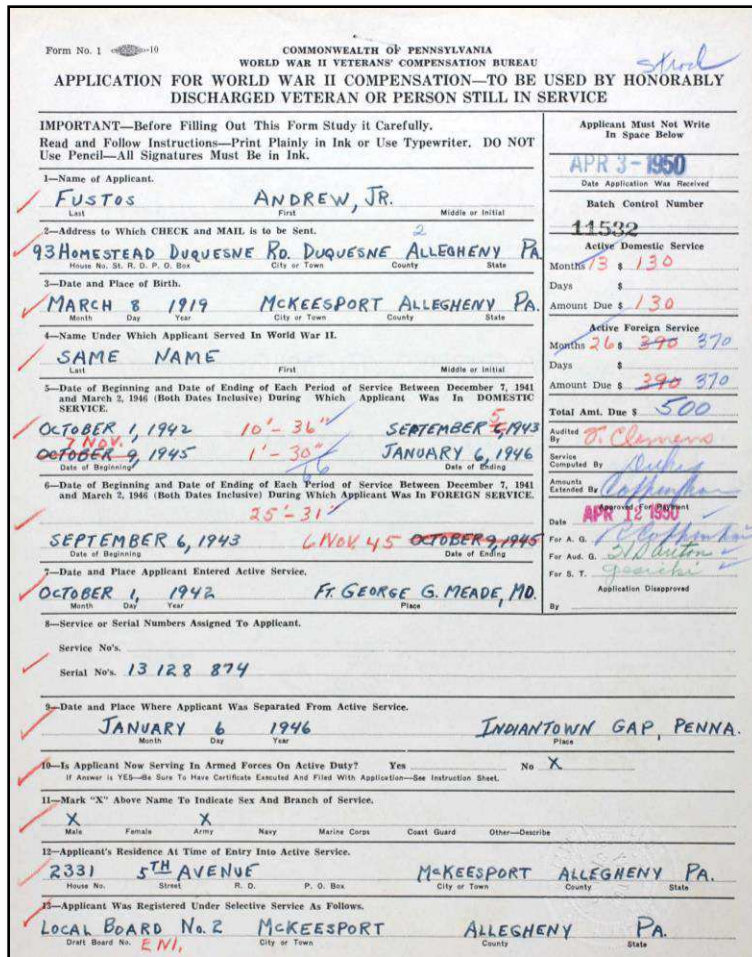 Form No. 1 -10
COMMONWEALTH OF PENNSYLVANIA
WORLD WAR II VETERANS' COMPENSATION BUREAU
APPLICATION FOR WORLD WAR II COMPENSATION—TO BE USED BY HONORABLY
DISCHARGED VETERAN OR PERSON STILL IN SERVICE
IMPORTANT—Before Filling Out This Form Study it Carefully.
Read and Follow Instructions—Print Plainly in Ink or Use Typewriter. DO NOT
Use Pencil—All Signatures Must Be in Ink.
1—Name of Applicant.
FUSTOS ANDREW, JR.
Last First Middle or Initial
2—Address to Which CHECK and MAIL is to be Sent. 2
93 HOMESTEAD DUQUESNE RD. DUQUESNE ALLEGHENY PA
House No. St. R. D. P. O. Box City or Town County State
3—Date and Place of Birth.
MARCH 8 1919 MCKEESPORT ALLEGHENY PA.
Month Day Year City or Town County State
4—Name Under Which Applicant Served In World War II.
SAME NAME
Last First Middle or Initial
5—Date of Beginning and Date of Ending of Each Period of Service Between December 7, 1941
and March 2, 1946 (Both Dates Inclusive) During Which Applicant Was In DOMESTIC
SERVICE.
5
OCTOBER 1, 1942 10'-36" SEPTEMBER 6, 1943
7 NOV.
OCTOBER 9, 1945 1'-30" JANUARY 6, 1946
66
Date of Beginning Date of Ending
6—Date of Beginning and Date of Ending of Each Period of Service Between December 7, 1941
and March 2, 1946 (Both Dates Inclusive) During Which Applicant Was In FOREIGN SERVICE.
25'-31"
SEPTEMBER 6, 1943 6 NOV. 45 OCTOBER 9, 1945
Date of Beginning Date of Ending
7—Date and Place Applicant Entered Active Service.
OCTOBER 1, 1942 FT. GEORGE G. MEADE, MD.
Month Day Year Place
8—Service or Serial Numbers Assigned To Applicant.
Service No's.
Serial No's. 13 128 874
9—Date and Place Where Applicant Was Separated From Active Service.
JANUARY 6 1946 INDIANTOWN GAP, PENNA.
Month Day Year Place
10—Is Applicant Now Serving In Armed Forces On Active Duty? Yes No X
If Answer is YES—Be Sure To Have Certificate Executed And Filed With Application—See Instruction Sheet.
11—Mark "X" Above Name To Indicate Sex And Branch of Service.
X X
Male Female Army Navy Marine Corps Coast Guard Other—Describe
12—Applicant's Residence At Time of Entry Into Active Service.
2331 5TH AVENUE MCKEESPORT ALLEGHENY PA.
House No. Street R. D. P. O. Box City or Town County State
13—Applicant Was Registered Under Selective Service As Follows.
LOCAL BOARD NO. 2 MCKEESPORT ALLEGHENY PA.
Draft Board No. ENL. City or Town County State
Applicant Must Not Write
In Space Below
APR 3-1950
Date Application Was Received
Batch Control Number
11532
Active Domestic Service
Months 13 $ 130
Days $
Amount Due $ 130
Active Foreign Service
Months 26 $ 390 370
Days $
Amount Due $ 390 370
Total Amt. Due $ 500
Audited
By J. Clemens
Service
Computed By
Amounts
Extended By
Approved For Payment
Date APR 12 1950
For A. G.
For Aud. G.
For S. T.
Application Disapproved
By